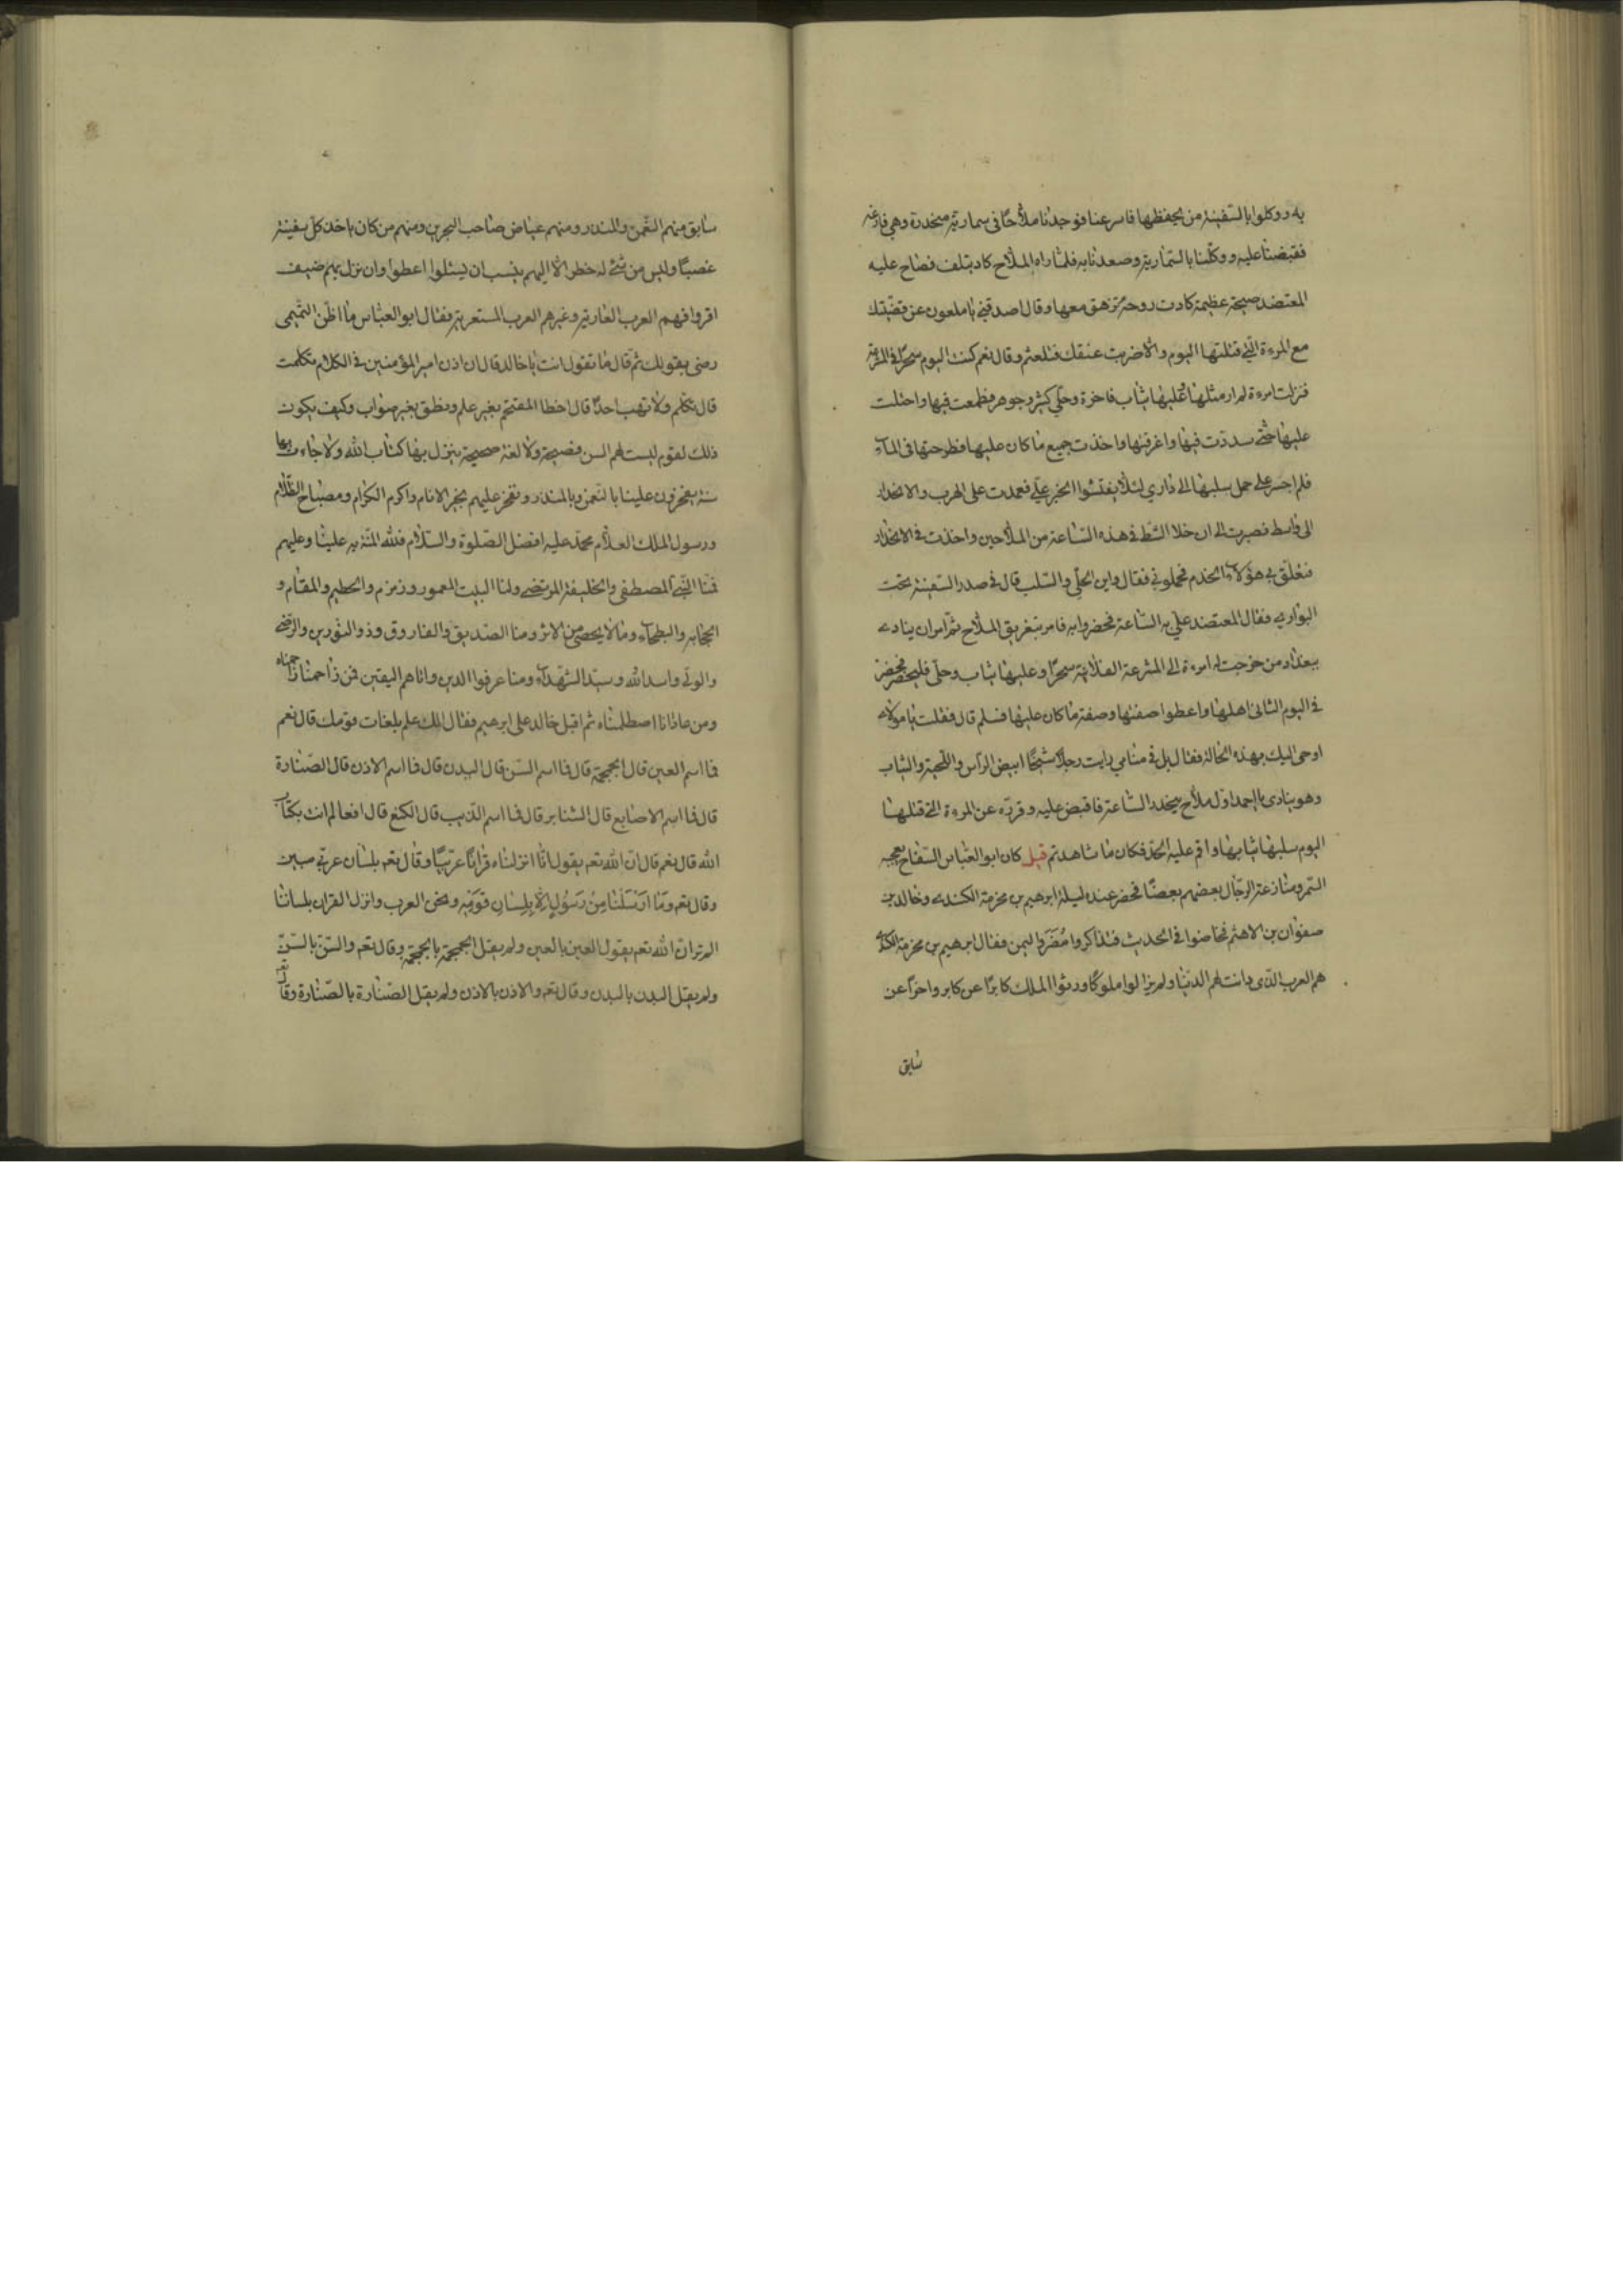 به ووكلوا بالسفينة من يحفظها فاسرعنا فوجدنا ملاحًا فى سمارية منحدرة وهي فارغة
فقبضنا عليه ووكلنا بالسمارية وصعدنا به فلما راه الملاح كاد يتلف فصاح عليه
المعتضد صيحة عظيمة كادت روحه تزهق معها وقال اصدقني يا ملعون عن قضيتك
مع المرءة التي قتلتها اليوم والا ضربت عنقك فتلعثم وقال نعم كنت اليوم سحرًا في المشرعة
فنزلت امرءة لم ار مثلها عليها ثياب فاخرة وحلي كثير وجوهر فطمعت فيها واحتلت
عليها حتى سددت فيها واغرقتها واخذت جميع ما كان عليها فطرحتها فى الماء
فلم اجسر على حمل سلبها الى داري لئلا يفتشوا الخبر علي فعمدت على الهرب والانحدار
الى واسط فصبرت الى ان خلا الشط في هذه الساعة من الملاحين واخذت في الانحدار
فتعلق بي هؤلاء الخدم فحملوني فقال واين الحلي والسلب قال في صدر السفينة تحت
البواري فقال المعتضد علي به الساعة فحضروا به فامر بتغريق الملاح ثم امر ان ينادى
ببغداد من خرجت له امرءة الى المشرعة الفلانية سحرًا وعليها ثياب وحلى فليحضر فحضر
في اليوم الثانى اهلها واعطوا صفتها وصفة ما كان عليها فسلم قال فقلت يا مولاى
اوحى اليك بهذه الحالة فقال بل في منامي رايت رجلا شيخًا ابيض الرأس واللحية والثياب
وهو ينادى يا احمد اول ملاح ينحدر الساعة فاقبض عليه وقرره عن المرءة التى قتلها
اليوم سلبها ثيابها واقم عليه الحد فكان ما شاهدتم قيل كان ابو العباس السفاح يعجبه
السمر ومنازعة الرجال بعضهم بعضًا فحضر عنده ليلة ابرهيم بن مخرمة الكندى وخالد بن
صفوان بن الاهتم فخاضوا فى الحديث فتذاكروا مُضَر واليمن فقال ابرهيم بن مخرمة الكندى
هم العرب الذى دانت لهم الدنيا ولم يزالوا ملوكًا ورثوا الملك كابرًا عن كابر واخرًا عن
سابق
سابق منهم النعمن والمنذر ومنهم عياض صاحب البحرين ومنهم من كان ياخذ كل سفينة
غصبًا وليس من شئ له خطر الا اليهم ينسب ان يسئلوا اعطوا وان نزل بهم ضيف
اقروا فهم العرب العاربة وغيرهم العرب المستعربة فقال ابو العباس ما اظن التميمى
رضى بقولك ثم قال ما تقول انت يا خالد قال ان اذن امير المؤمنين في الكلام تكلمت
قال تكلم ولا تهب احدًا قال اخطا المقتحم بغير علم ونطق بغير صواب وكيف يكون
ذلك لقوم ليست لهم السن فصيحة ولا لغة صحيحة ينزل بها كتاب الله ولا جاءت بها
سنة يفخرون علينا بالنعمن وبالمنذر ونفخر عليهم بخير الانام واكرم الكرام ومصباح الظلام
ورسول الملك العلام محمد عليه افضل الصلوة والسلام فلله المنة به علينا وعليهم
فمنا النبي المصطفى والخليفة المرتضى ولنا البيت المعمور وزمزم والحطيم والمقام و
الحجابه والبطحاء وما لا يحصى من الاثر ومنا الصديق والفاروق وذو النورين والرضى
والولي واسد الله وسيد الشهداء ومنا عرفوا الدين واتاهم اليقين فمن زاحمنا زاحمناه
ومن عادانا اصطلمناه ثم اقبل خالد على ابرهيم فقال الك علم بلغات قومك قال نعم
فما اسم العين قال الجحمة قال فما اسم السن قال البدن قال فما اسم الاذن قال الصنارة
قال فما اسم الاصابع قال الشناتر قال فما اسم الذيب قال الكنع قال افعالم انت بكتاب
الله قال نعم قال ان الله تعم يقول انا انزلناه قرانًا عربيًا وقال تعم بلسان عربي مبين
وقال تعم وَمَا اَرْسَلْنَا مِنْ رَسُولٍ اِلا بِلِسَانِ قَوْمِهِ ونحن العرب وانزل القران بلساننا
الم تر ان الله تعم يقول العين بالعين ولم يقل الجحمة بالجحمة وقال تعم والسن بالسن
ولم يقل البدن بالبدن وقال تعم والاذن بالاذن ولم يقل الصنارة بالصنارة وقال تعم